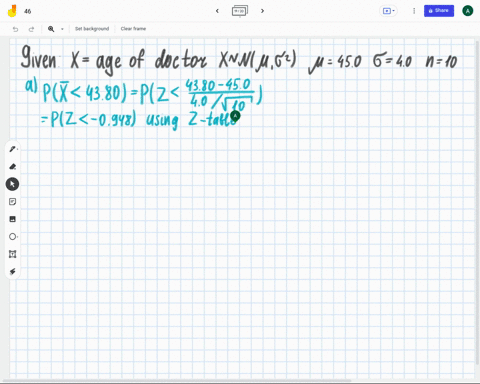 46
Share
A
Set background
Clear frame
Given X = age of doctor X~N(μ,σ²) μ=45.0 σ=4.0 n=10
a) P(X̄ < 43.80) = P(Z < (43.80-45.0)/(4.0/√10))
= P(Z < -0.948) using Z-table
A